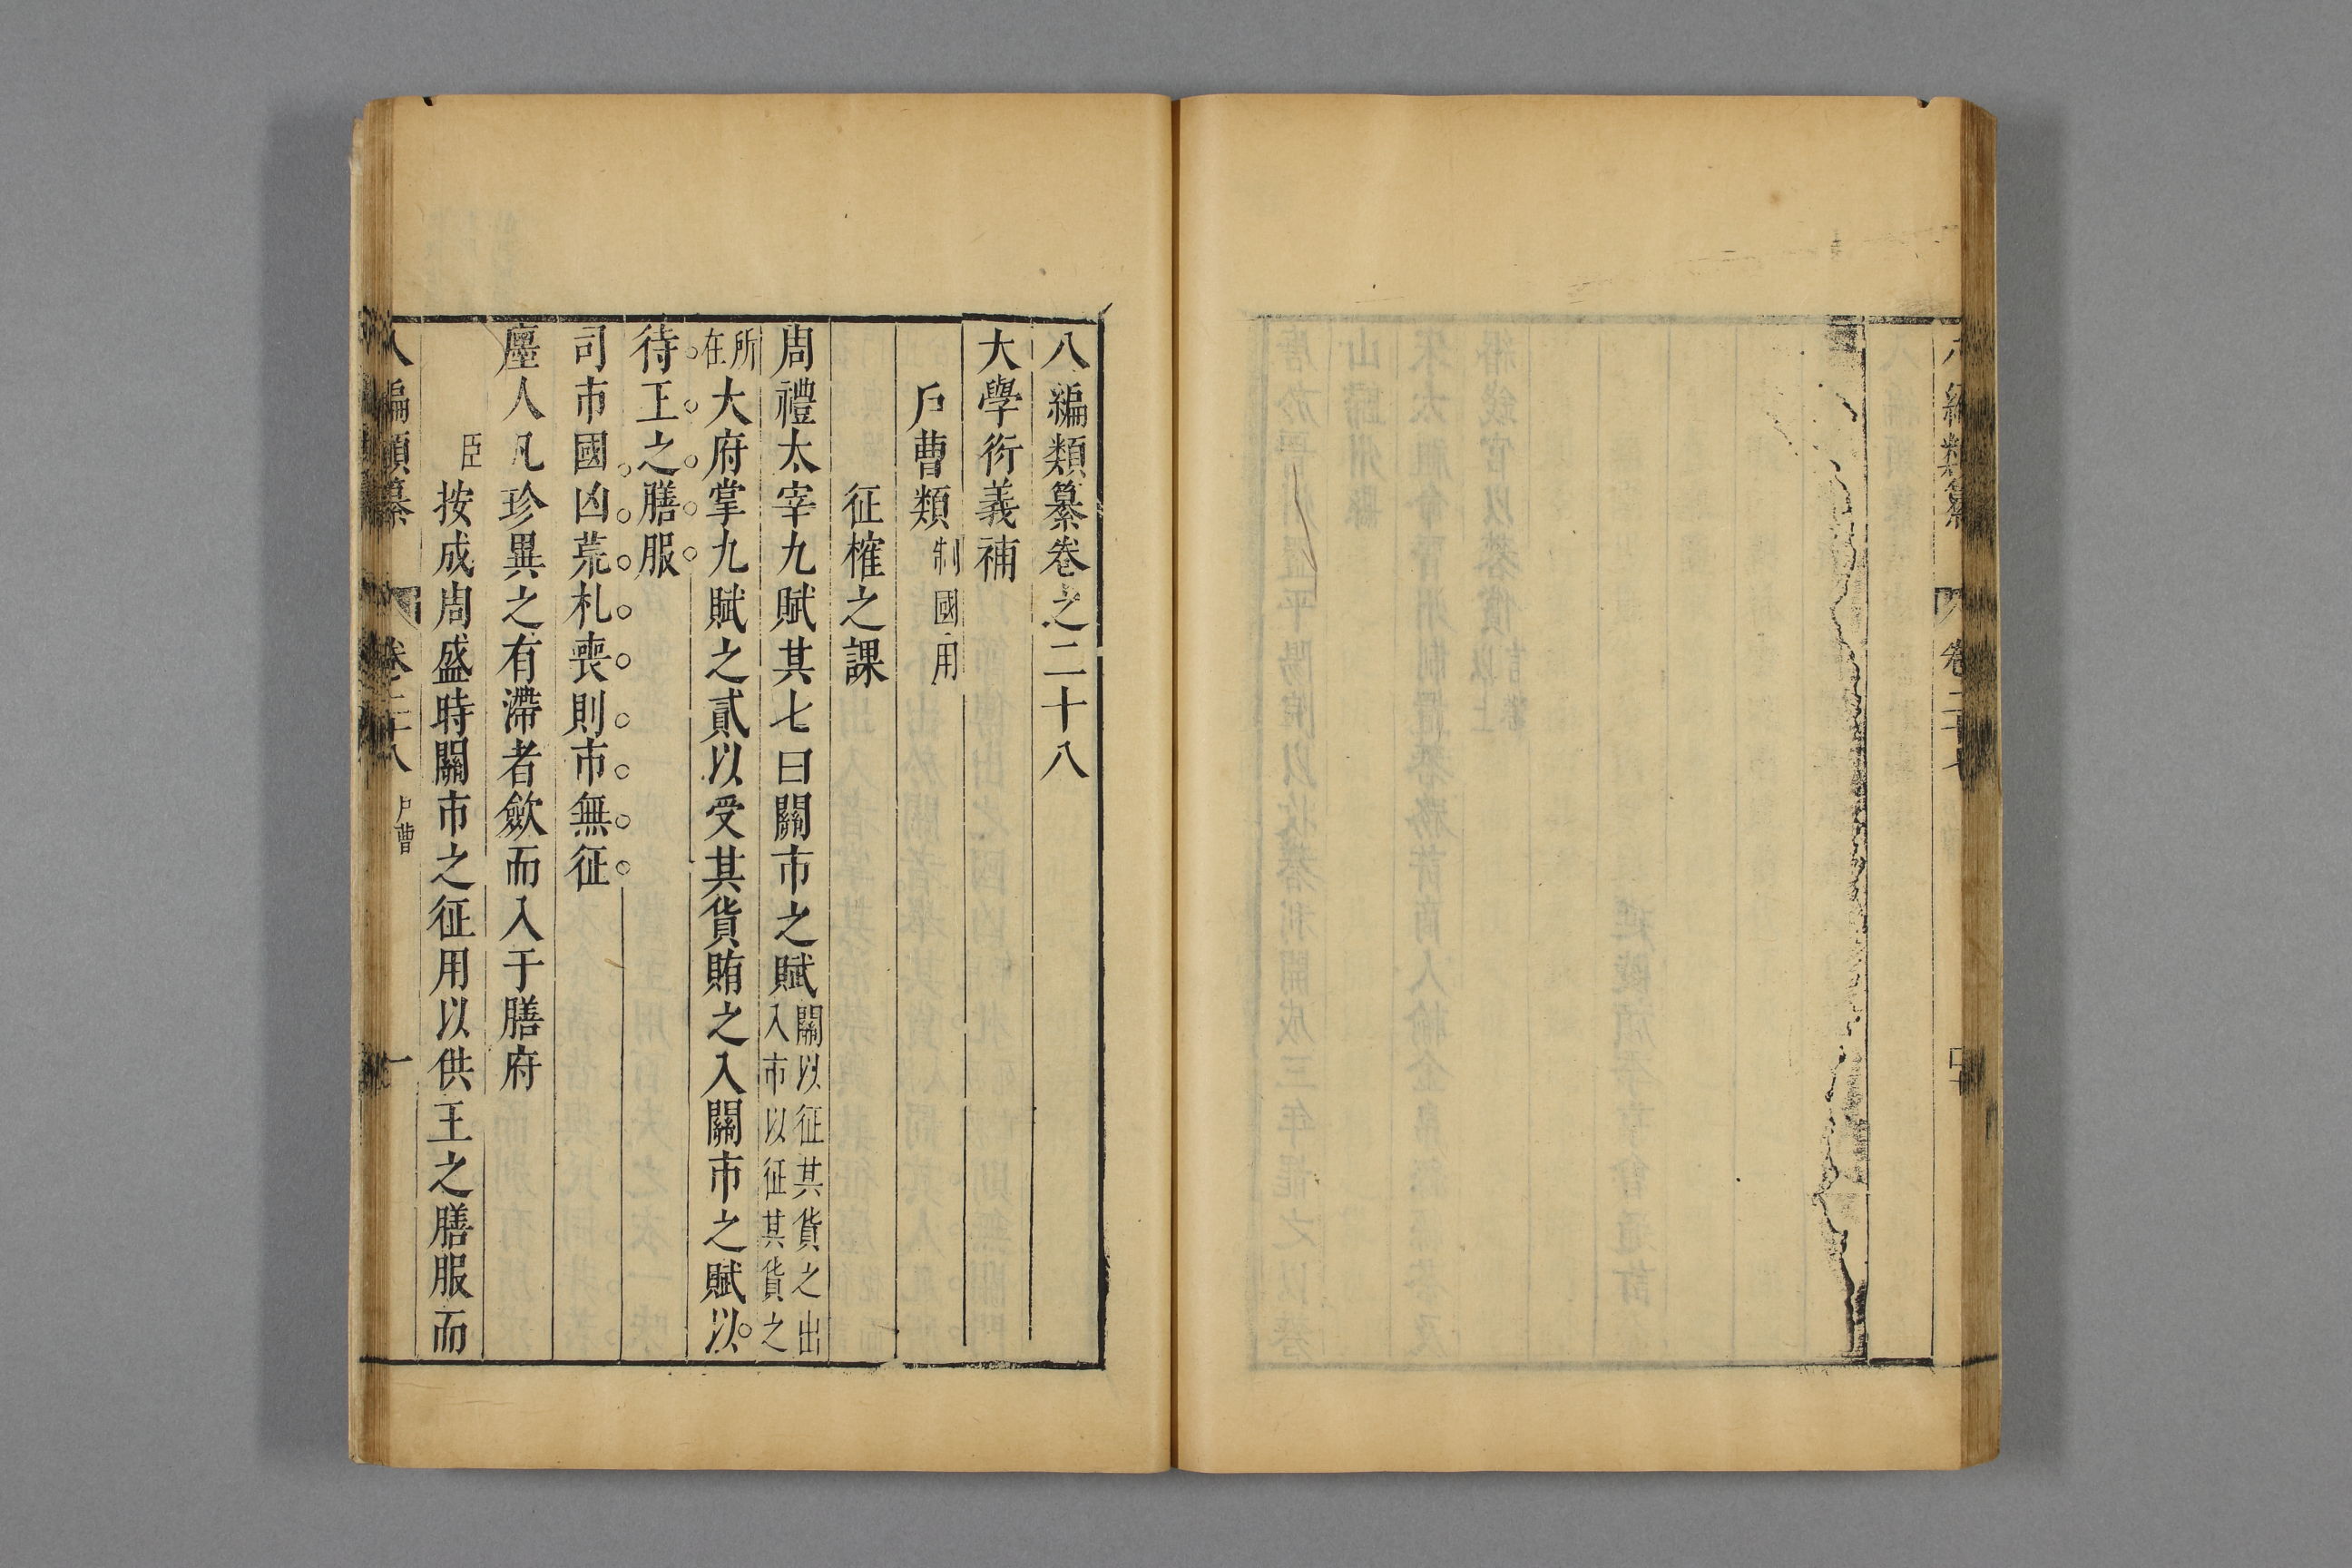 八編類纂卷之二十八
大學衍義補
戶曹類 制國用
征榷之課
周禮太宰九賦其七曰關市之賦 關以征其貨之出入市以征其貨之
所在 大府掌九賦之貳以受其貨賄之入關市之賦以
待王之膳服
司市國凶荒札喪則市無征
廛人凡珍異之有滯者歛而入于膳府
臣按成周盛時關市之征用以供王之膳服而
八編類纂 卷二十八 戶曹 一